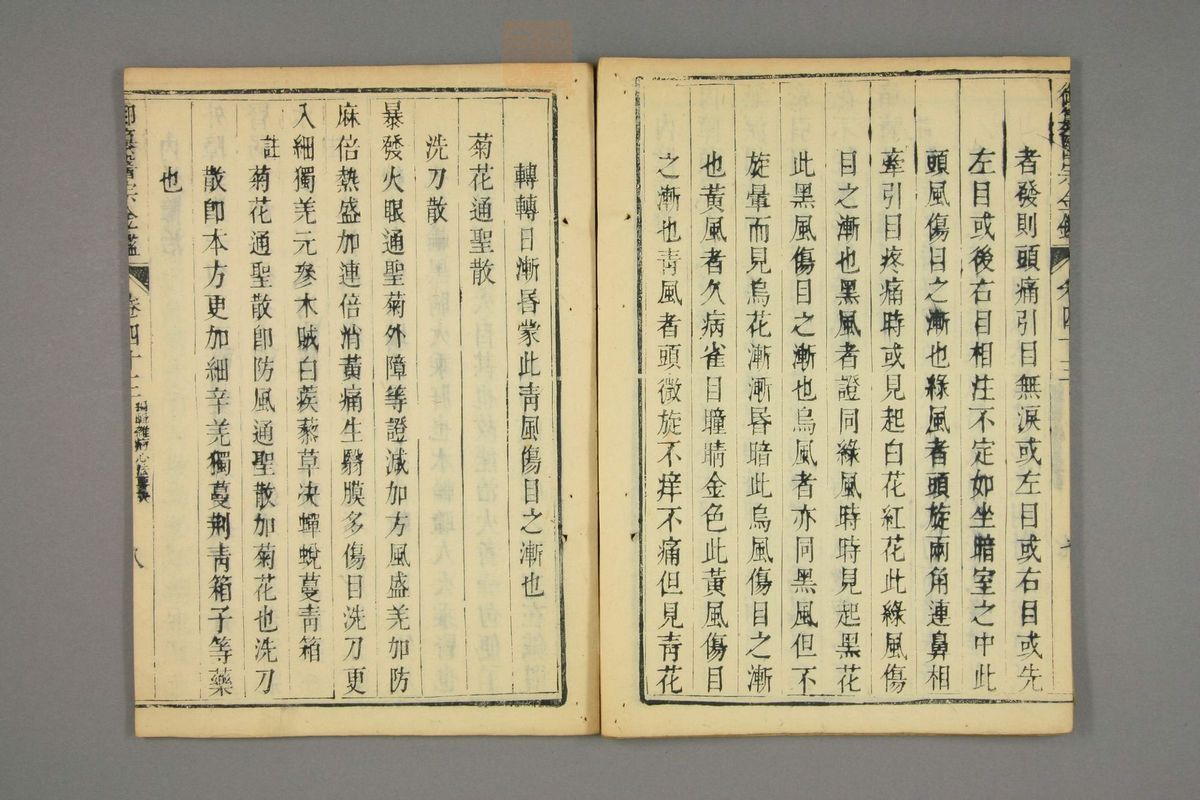 者發則頭痛引目無淚或左目或右目或先
左目或後右目相注不定如坐暗室之中此
頭風傷目之漸也綠風者頭旋兩角連鼻相
牽引目疼痛時或見起白花紅花此綠風傷
目之漸也黑風者證同綠風時時見起黑花
此黑風傷目之漸也烏風者亦同黑風但不
旋暈而見烏花漸漸昏暗此烏風傷目之漸
也黃風者久病雀目瞳睛金色此黃風傷目
之漸也青風者頭微旋不痒不痛但見青花
轉轉日漸昏蒙此青風傷目之漸也
菊花通聖散
洗刀散
暴發火眼通聖菊外障等證減加方風盛羌加防
麻倍熱盛加連倍消黃痛生翳膜多傷目洗刀更
入細獨羌元參木賊白蒺藜草決蟬蛻蔓青箱
註菊花通聖散卽防風通聖散加菊花也洗刀
散卽本方更加細辛羌獨蔓荆青箱子等藥
也
御纂醫宗金鑑 卷四十三 編輯雜病心法要訣 八